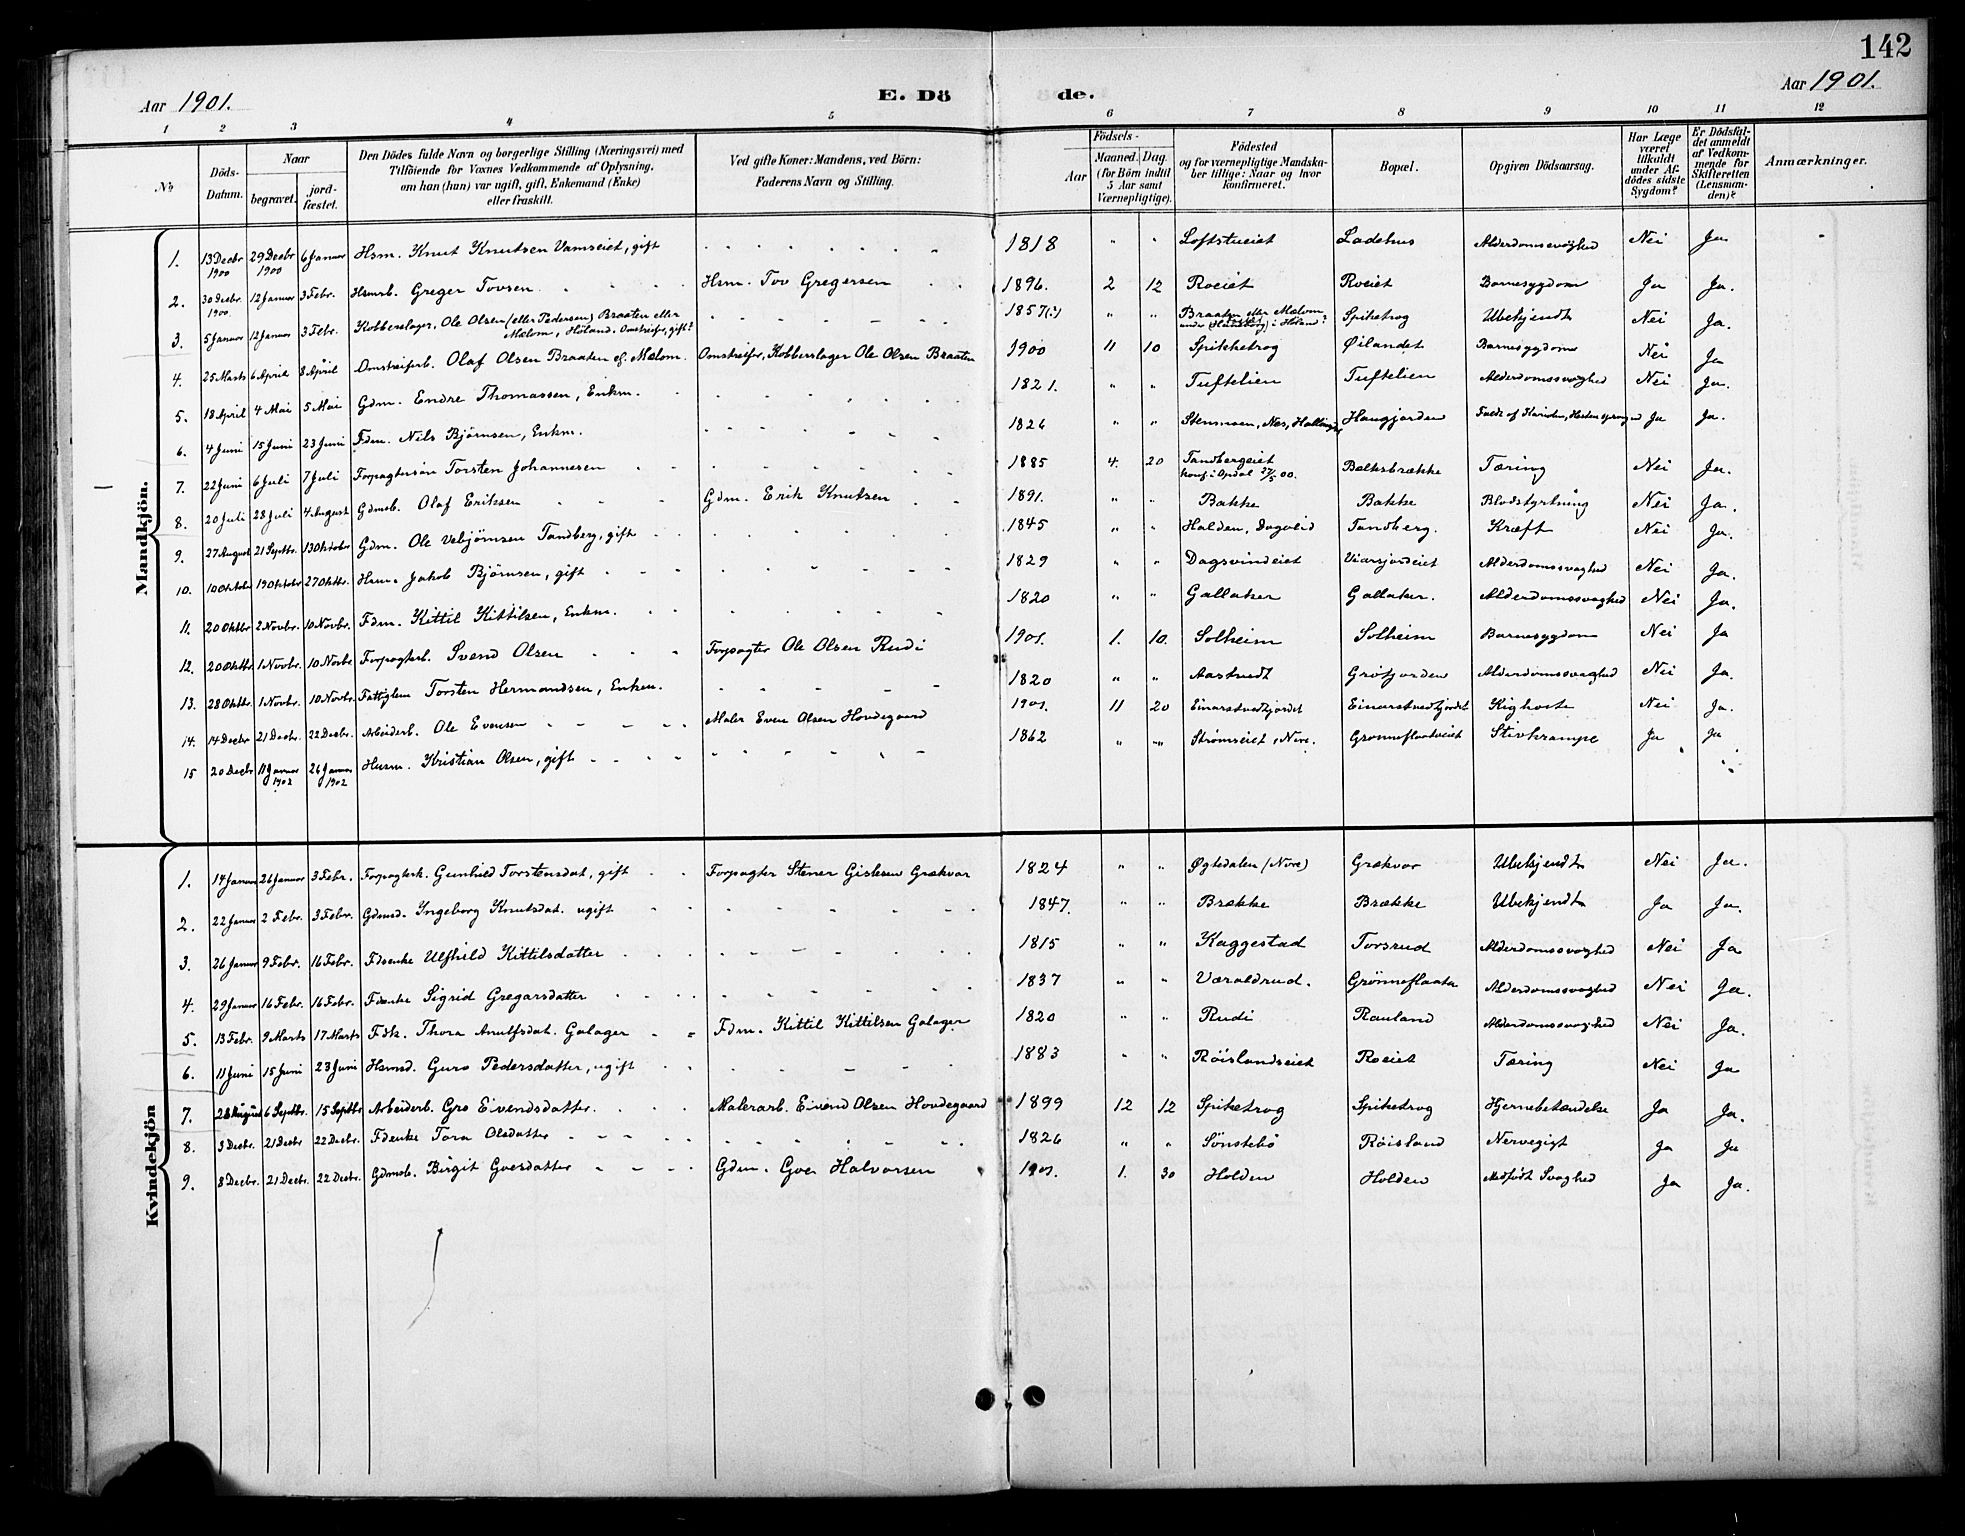 142
Aar 1901.
E. Dö de.
Aar 1901.
1 2 3 4 5 6 7 8 9 10 11 12
No
Döds-Datum.
Naar
begravet.
jord-fæstet.
Den Dödes fulde Navn og borgerlige Stilling (Næringsvei) med
Tilföiende for Voxnes Vedkommende af Oplysning,
om han (hun) var ugift, gift, Enkemand (Enke)
eller fraskilt.
Ved gifte Koner: Mandens, ved Börn:
Faderens Navn og Stilling.
Födsels-
Aar
Maaned. Dag.
(for Börn indtil
5 Aar samt
Værnepligtige).
Födested
og for værnepligtige Mandska-
ber tillige: Naar og hvor
konfirmeret.
Bopæl.
Opgiven Dödsaarsag.
Har Læge
været
tilkaldt
under Af-
dödes sidste
Sygdom?
Er Dödsfal-
det anmeldt
af Vedkom-
mende for
Skifteretten
(Lensman-
den)?
Anmærkninger.
Mandkjön.
1. 13 Decbr 1900 29 Decbr 1900 6 Januar Hsm. Knut Knutsen Vamseiet, gift 1818 " " Loftstueiet Ladehus Alderdomssvaghed Nei Ja
2. 30 Decbr. 1900 12 Januar 3 Febr. Hsmsb. Greger Tovsen Hsm. Tov Gregersen 1896. 2 12 Roeiet Roeiet Barnesygdom Ja Ja.
3. 5 Januar 12 Januar 3 Febr. Kobberslager, Ole Olsen (eller Pedersen) Braaten eller Malom, Höland. Omstreifer, gift? 1857(?) " " Braaten eller Malom under i Höland? Spiketrog Ubekjendt Nei Ja.
4. 25 Marts 6 April 8 April Omstreiferb. Olaf Olsen Braaten el. Malom. Omstreifer, Kobberslager Ole Olsen Braaten 1900 11 10 Spikketrog Øilandet Barnesygdom Nei Ja
5. 18 April 4 Mai 5 Mai Gdm. Endre Thomassen, Enkm. 1821. " " Tuftelien Tuftelien Alderdomssvaghed Nei Ja.
6. 4 Juni 15 Juni 23 Juni Fdm. Nils Bjørnsen, Enkm. 1826 " " Stenmoen, Næs, Hallingd. Haugjorden Faldt af Kariolen, Hesten sprang ud Ja Ja.
7. 22 Juni 6 Juli 7 Juli Forpagtersøn Torsten Johannesen 1885 4. 20 Tandbergeiet konf. i Opdal 27/5 00. Bakkebrække Tæring Nei Ja.
8. 20 Juli 28 Juli 4 August Gdmsb. Olaf Eriksen Gdm. Erik Knutsen 1891. " " Bakke Bakke Blodstyrtning Nei Ja.
9. 27 August 21 Septbr. 13 Oktober Gdm. Ole Vebjørnsen Tandberg, gift 1845 " " Halden, Dagolid Tandberg. Kræft Nei Ja.
10. 10 Oktober 19 Oktober 27 Oktbr. Hsm. Jakob Bjørnsen, gift 1829 " " Dagsvindeiet Viersjordeiet Alderdomssvaghed Nei Ja.
11. 20 Oktbr 2 Novbr. 10 Novbr. Fdm. Kittil Kittilsen, Enkm. 1820 " " Gallaker Gallaker. Alderdomssvaghed Nei Ja.
12. 20 Oktbr. 1 Novbr. 10 Novbr. Forpagterb. Svend Olsen Forpagter Ole Olsen Rudi 1901. 1. 10. Solheim Solheim Barnesygdom Nei Ja
13. 28 Oktbr. 1 Novbr. 10 Novbr. Fattiglem Torsten Hermandsen, Enkm. 1820 " " Aastvedt Grøtjorden Alderdomssvaghed Nei Ja.
14. 14 Decbr 21 Decbr. 22 Decbr. Arbeiderb. Ole Evensen Maler Even Olsen Hovdegaard 1901. 11 20 Einarstvedtjordet Einarstvedtjordet Kighoste Nei Ja.
15 20 Decbr 11 Januar 1902 26 Januar 1902 Husm. Kristian Olsen, gift 1862 " " Strømseiet, Nore. Grønneflaateiet Stivkrampe Ja Ja
Kvindekjön
1. 14 Januar 26 Januar 3 Febr. Forpagterk. Gunhild Torstensdat, gift Forpagter Stener Gislesen Grækvor 1824 " " Øgtedalen (Nore) Grækvor Ubekjendt Nei Ja.
2. 22 Januar 2 Febr. 3 Febr. Gdmsd. Ingeborg Knutsdat. ugift 1847. " " Brække Brække Ubekjendt Ja Ja.
3. 26 Januar 9 Febr. 16 Febr. Fdsenke Ulfhild Kittilsdatter 1815 " " Kaggestad Torsrud Alderdomssvaghed Nei Ja
4. 29 Januar 16 Febr. 16 Febr. Fdenke Sigrid Gregarsdatter 1837 " " Væraldrud. Grønneflaata Alderdomssvaghed Nei Ja.
5. 13 Febr. 9 Marts 17 Marts Fdk. Thora Arnulfsdat. Galager Fdm. Kittil Kittilsen Galager 1820 " " Rudi Rauland Alderdomssvaghed Nei Ja.
6. 11 Juni 15 Juni 23 Juni Hsmsd. Guro Pedersdatter, ugift 1883 " " Røislandseiet Roeiet Tæring Nei Ja
7. 28 August 6 Septbr. 15 Septbr Arbeiderb. Gro Eivendsdatter. Malerarb. Eivend Olsen Hovdegaard 1899 12 12 Spiketrog Spiketrog Hjernebetændelse Ja Ja.
8. 3 Decbr. 21 Decbr 22 Decbr. Fdenke Tora Olsdatter 1826 " " Sønstebö Røisland Nervegigt Ja Ja
9. 8 Decbr. 21 Decbr. 22 Decbr. Gdmsb. Birgit Goesdatter Gdm. Goe Halvorsen 1901. 1. 30 Holden Holden Medfödt Svaghed Ja Ja.